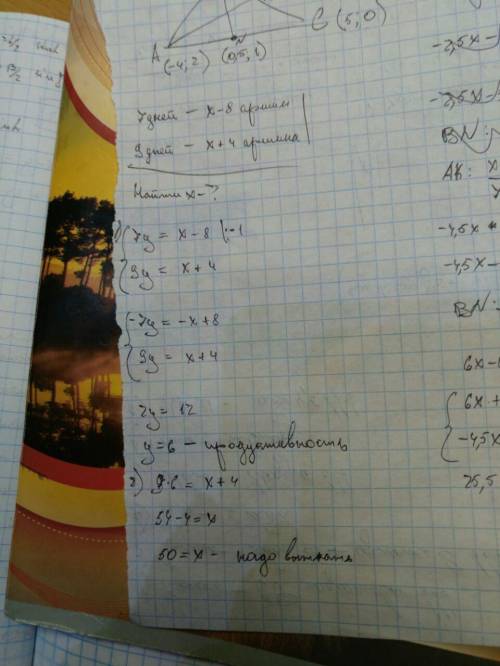 C (5; 0)
A N
(-4; 2) (0,5; 1)
7 дней - x-8 аршин
9 дней - x+4 аршина
Найти x-?
1) 7y = x-8 |·-1
9y = x+4
-7y = -x+8
9y = x+4
2y = 12
y=6 - продуктивность
2) 9·6 = x+4
54-4=x
50=x - надо выткать
-2,5x-
-2,5x-
BN:
AK: x
-4,5x
-4,5x-
BN:
6x-
6x+
-4,5x
25,5